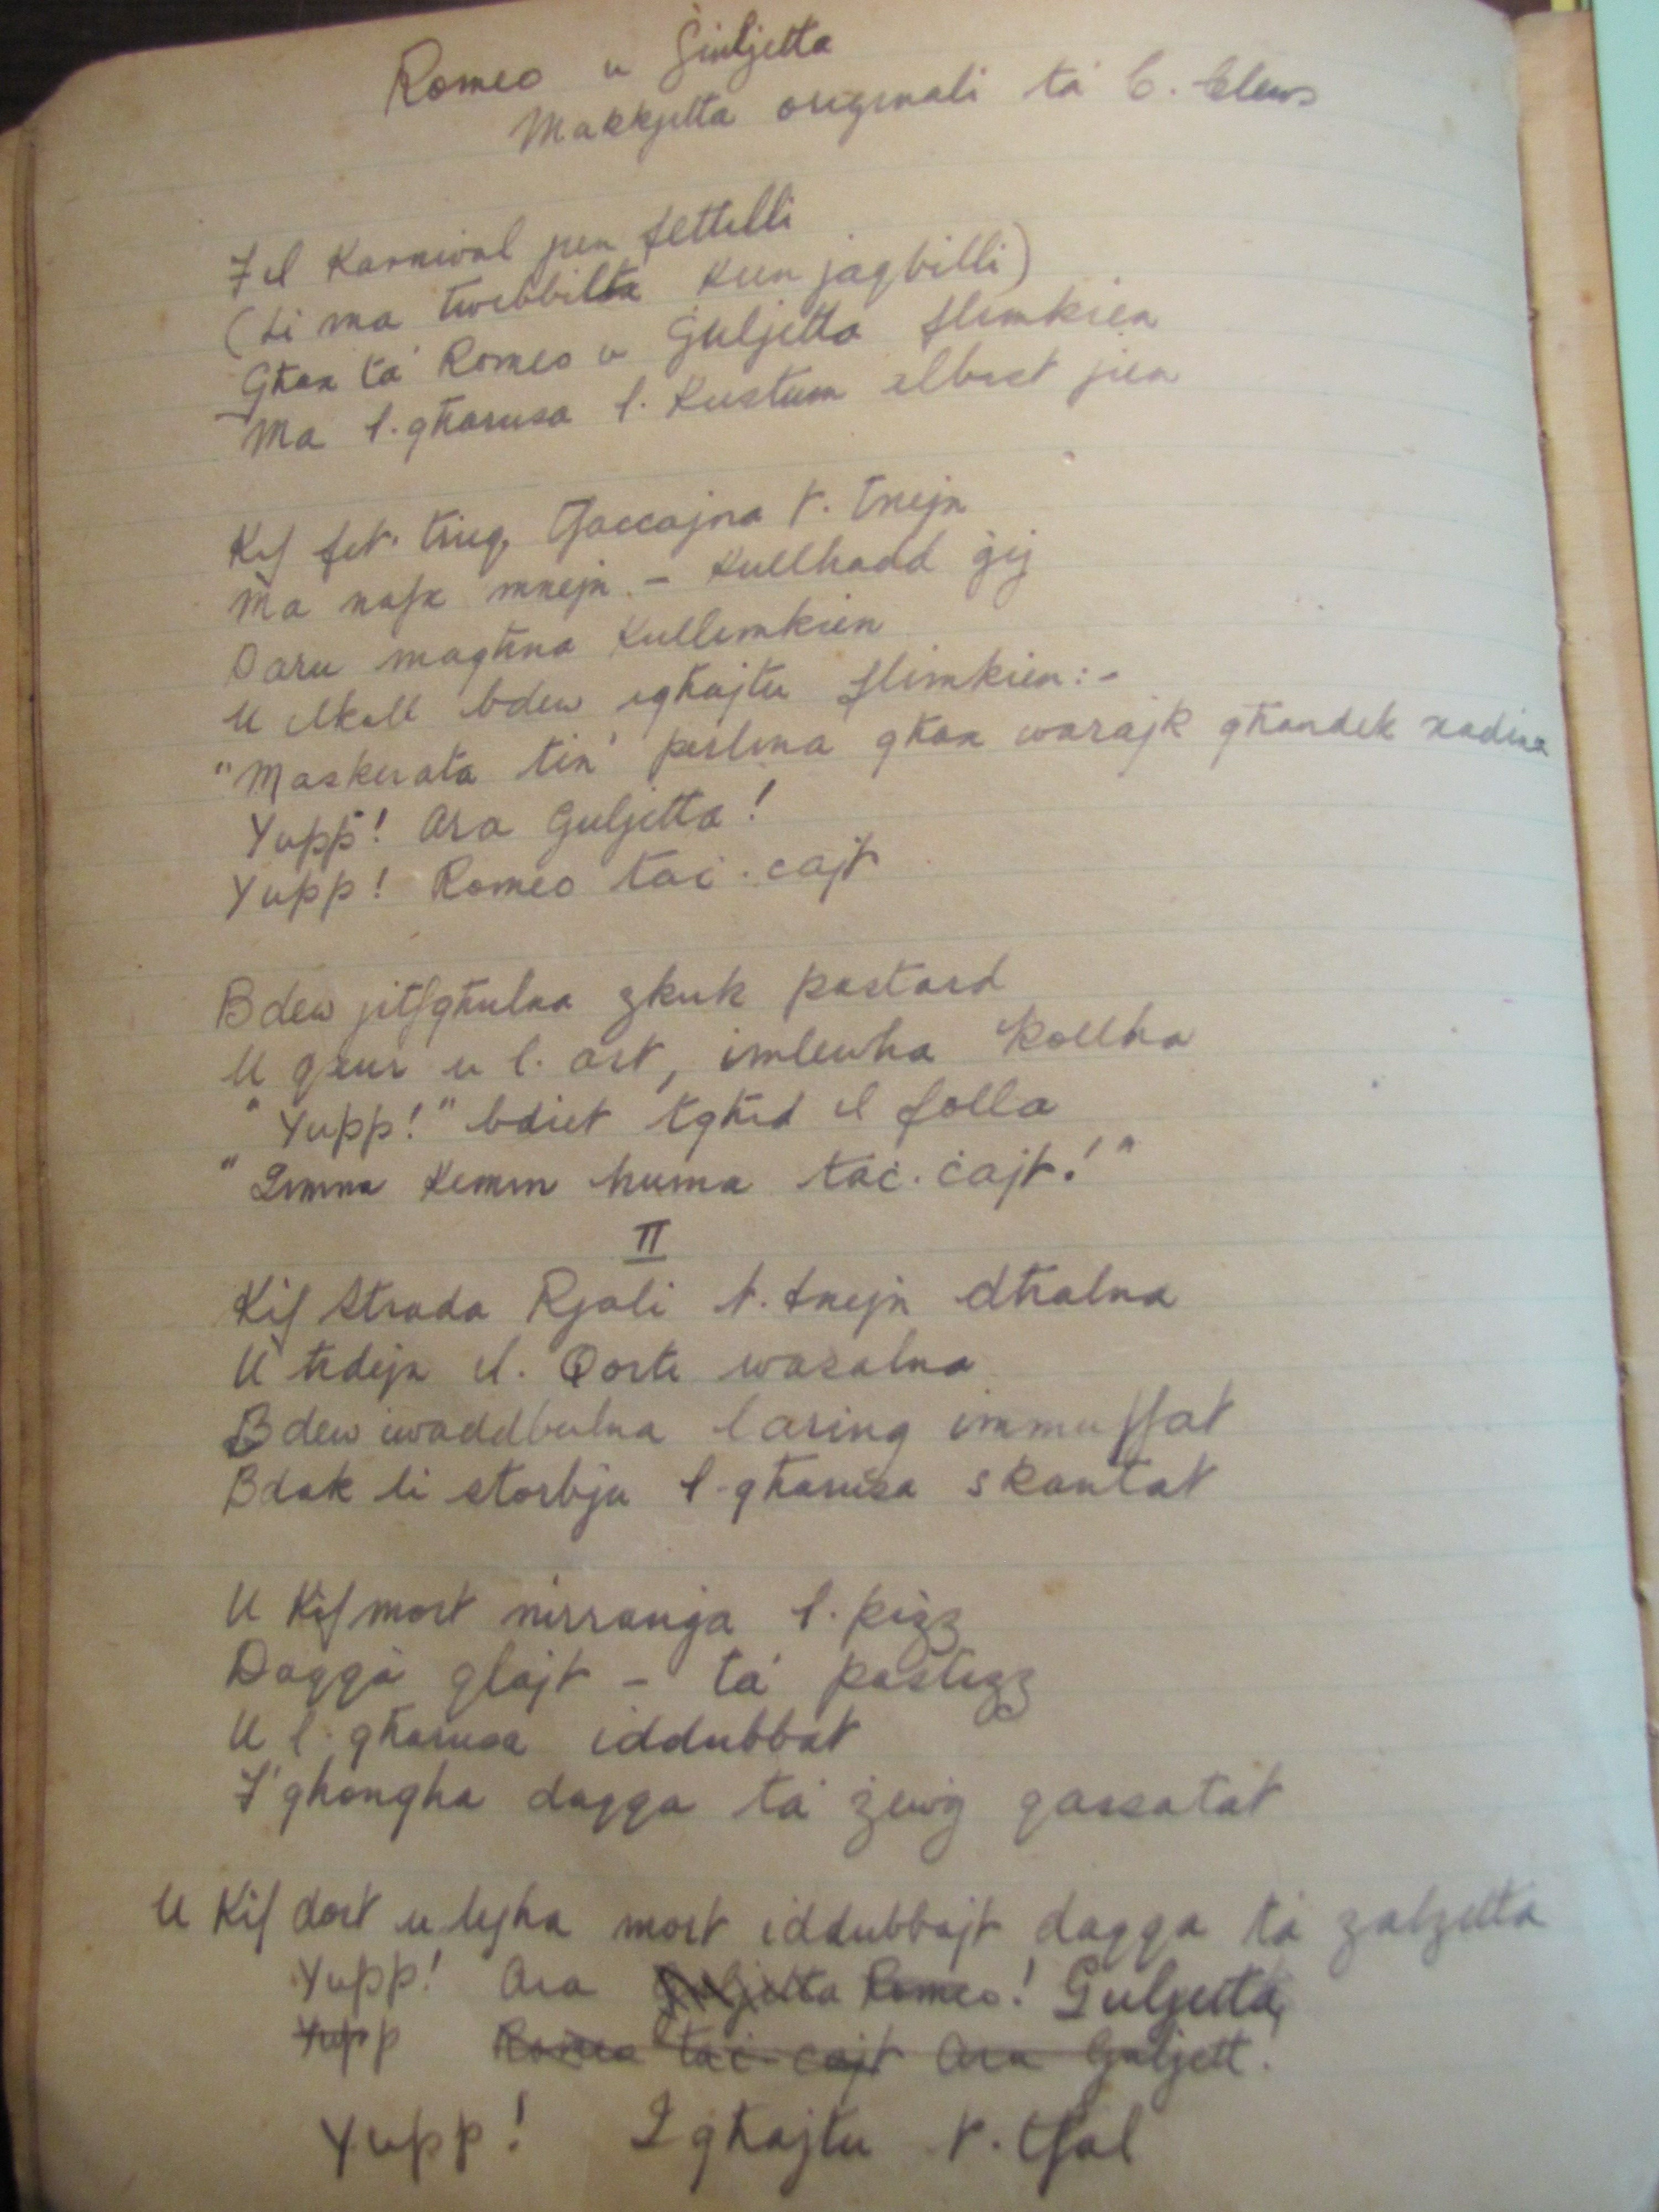 Romeo u Ġiuljetta
Makkjetta originali ta' C. Clews
Fil Karnival jien fettilli
(Li ma twebbilta kien jaqbilli)
Għax ta' Romeo u Ġuljetta flimkien
Ma l. għarusa l. Kustum ilbist jien
Kif fit. triq, tfaċċajna t. tnejn
Ma nafx mnejn - kullhadd ġej
Daru magħna kullimkien
U ilkoll bdew igħajtu flimkien:-
"Maskerata tin' perlina għax warajk għandek xadina
Yupp! Ara Ġuljetta!
Yupp! Romeo taċ. cajt
Bdew jitfgħulna zkuk pastard
U qxur u l. art, imlewha kollha
"Yupp!" bdiet tgħid il folla
"Imma kemm huma taċ. ċajt!"
II
Kif Strada Rjali t. tnejn dħalna
U ħdejn il. Qorti wasalna
Bdew iwaddbulna laring immuffat
Bdak li storbju l-għarusa skantat
U Kif mort nirranġa l. pizz
Daqqa qlajt - ta' pastizz
U l. għarusa iddubbat
F'għongha daqqa ta' żewġ qassatat
U Kif dort u lejha mort iddubbajt daqqa ta' zalzetta
Yupp! Ara Ġuljetta Romeo! Ġuljetta,
Yupp Romeo taċ. cajt Ara Ġuljett!
Yupp! Igħajtu t. tfal